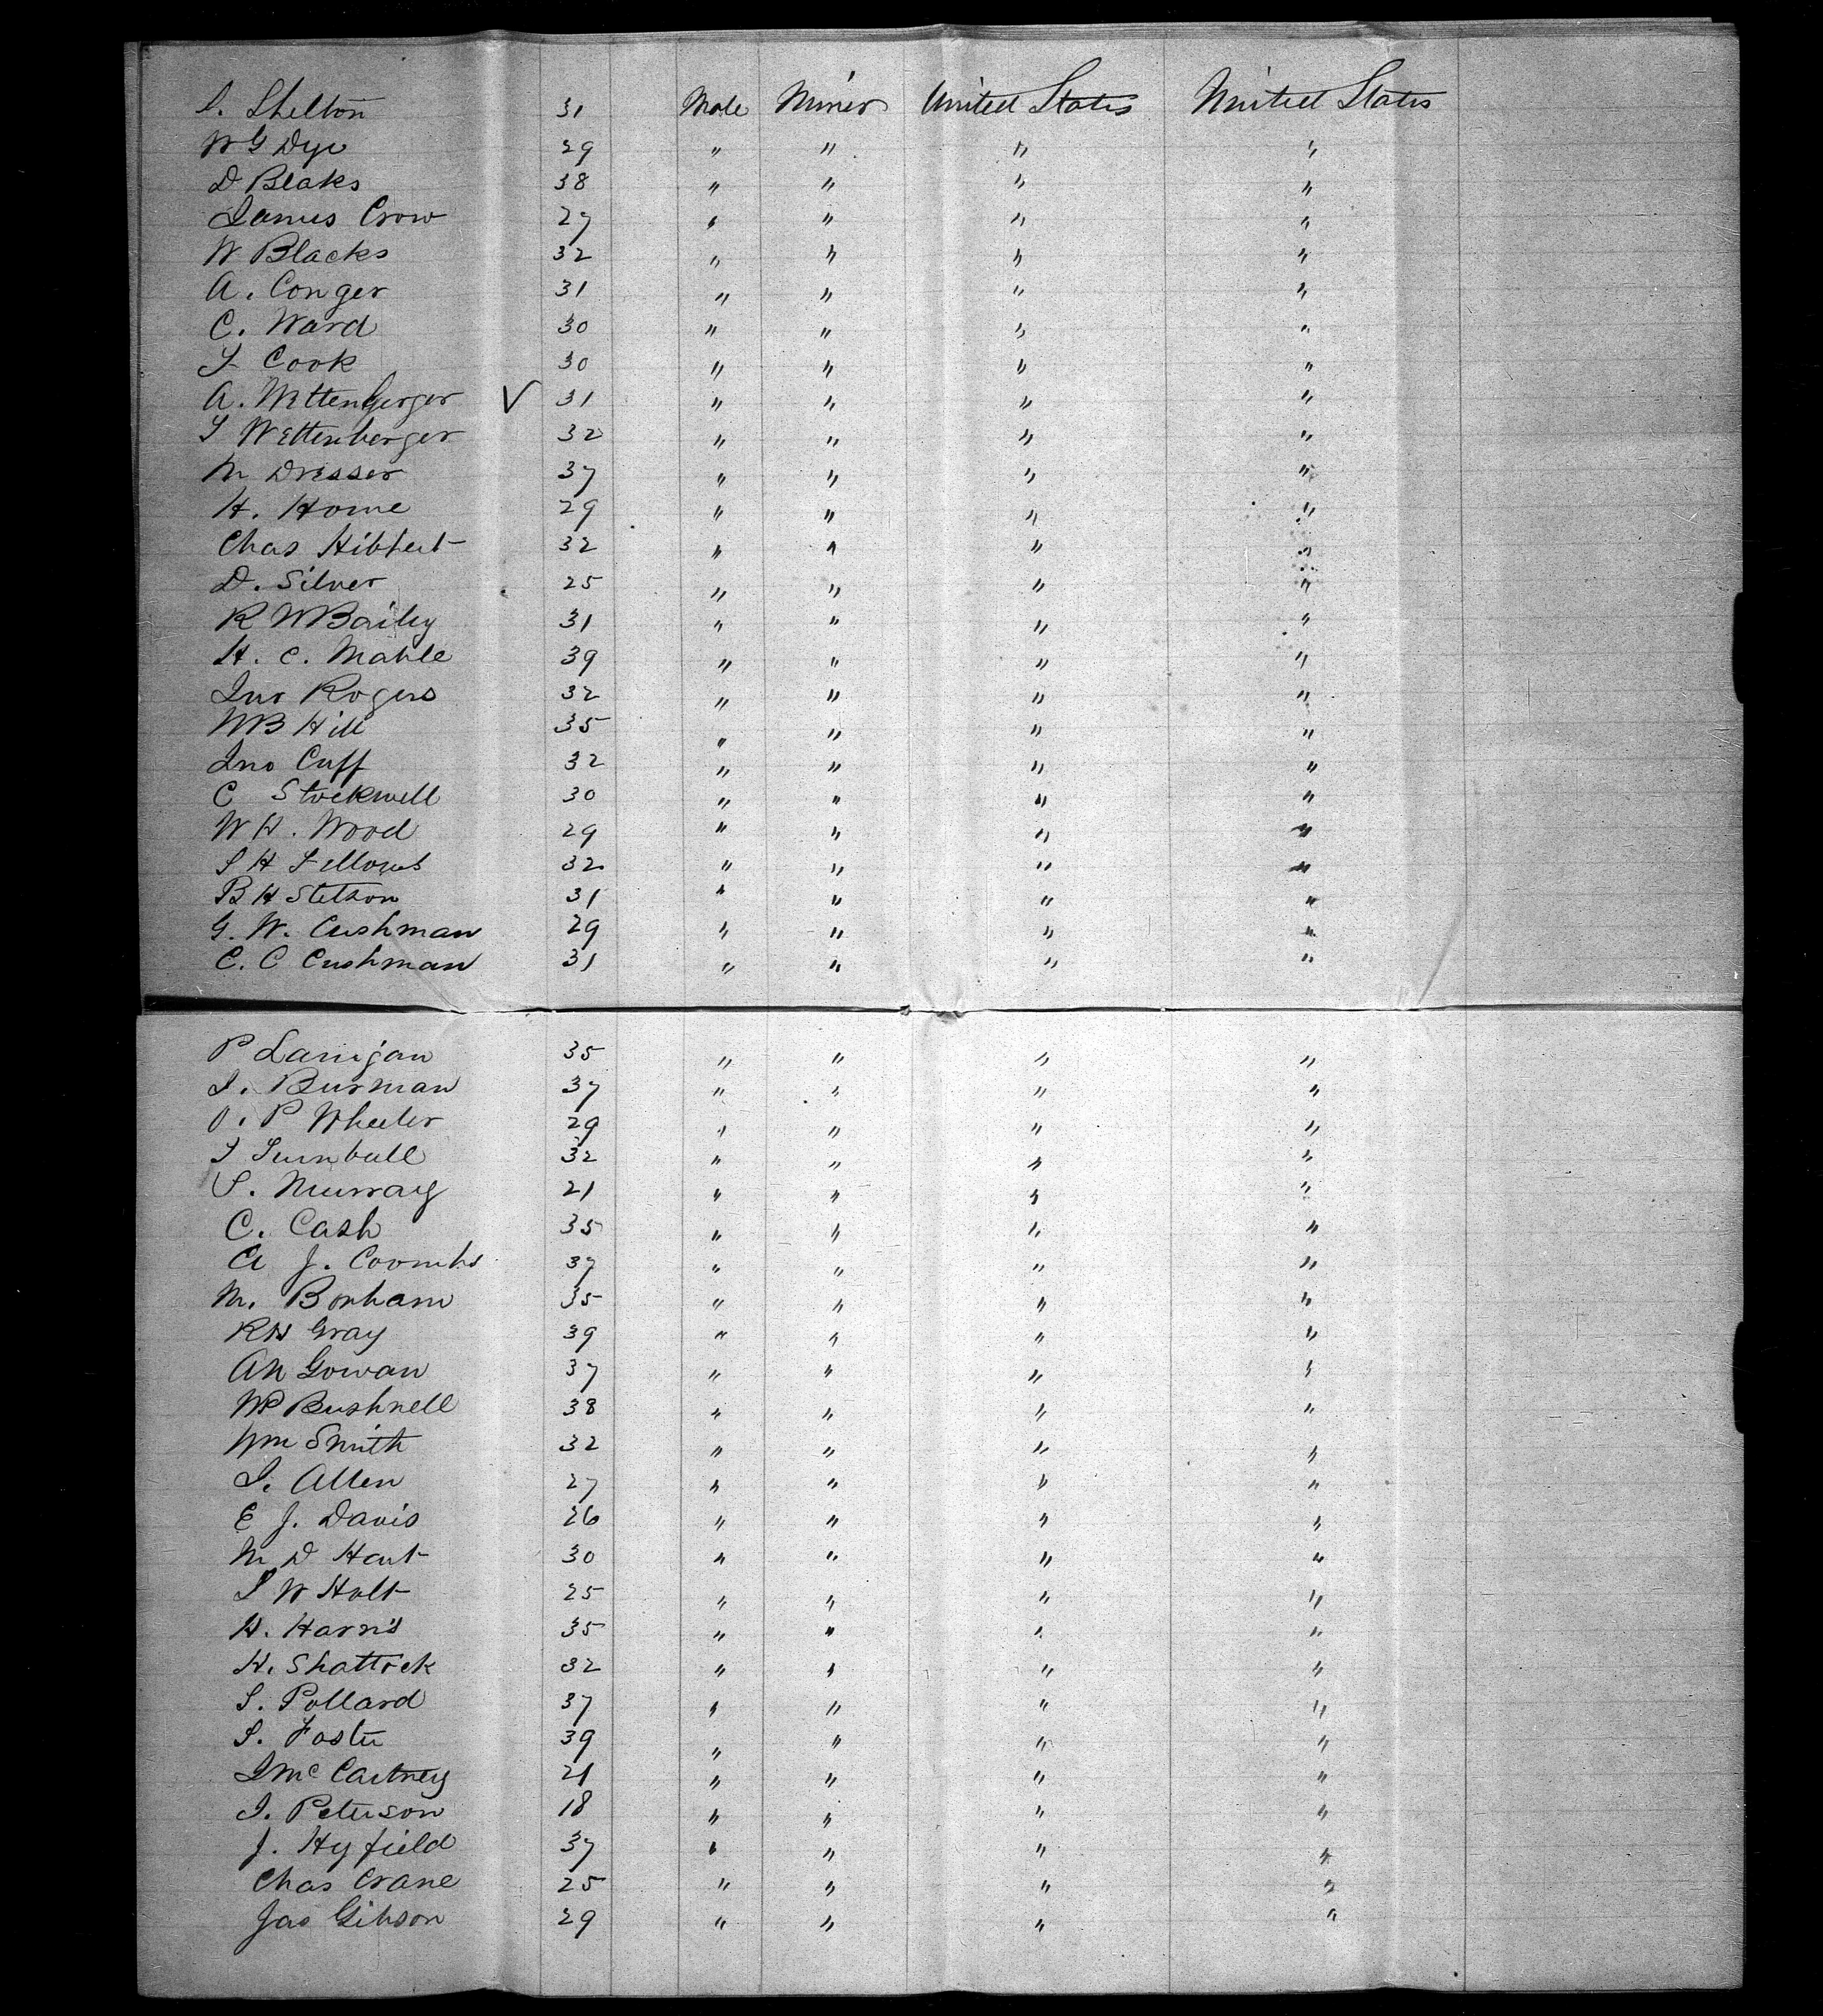 S. Shelton 31 Male Miner United States United States
W G Dye 29 " " " "
D Blaks 38 " " " "
James Crow 27 " " " "
W Blacks 32 " " " "
A. Conger 31 " " " "
C. Ward 30 " " " "
T Cook 30 " " " "
A. Wettenberger √ 31 " " " "
T Wettenberger 32 " " " "
M Dresser 37 " " " "
H. Home 29 " " " "
Chas Hibbert 32 " " " "
D. Silver 25 " " " "
R W Baily 31 " " " "
H. C. Mable 39 " " " "
Jno Rogers 32 " " " "
W B Hill 35 " " " "
Jno Cuff 32 " " " "
C Stockwell 30 " " " "
W H. Wood 29 " " " "
S H Fellows 32 " " " "
B H Stetson 31 " " " "
G. W. Cushman 29 " " " "
C. C Cushman 31 " " " "
P Lanigan 35 " " " "
J. Burman 37 " " " "
O. P Wheeler 29 " " " "
T Turnbull 32 " " " "
S. Murray 21 " " " "
C. Cash 35 " " " "
A J. Coombs 37 " " " "
M. Bonham 35 " " " "
R H Gray 39 " " " "
A N Gowan 37 " " " "
W P Bushnell 38 " " " "
Wm Smith 32 " " " "
J. Allen 27 " " " "
E J. Davis 26 " " " "
M D Hart 30 " " " "
S W Holt 25 " " " "
H. Harris 35 " " " "
H. Shattock 32 " " " "
S. Pollard 37 " " " "
S. Foster 39 " " " "
J McCartney 21 " " " "
J. Peterson 18 " " " "
J. Hyfield 37 " " " "
Chas Crane 25 " " " "
Jas Gibson 29 " " " "